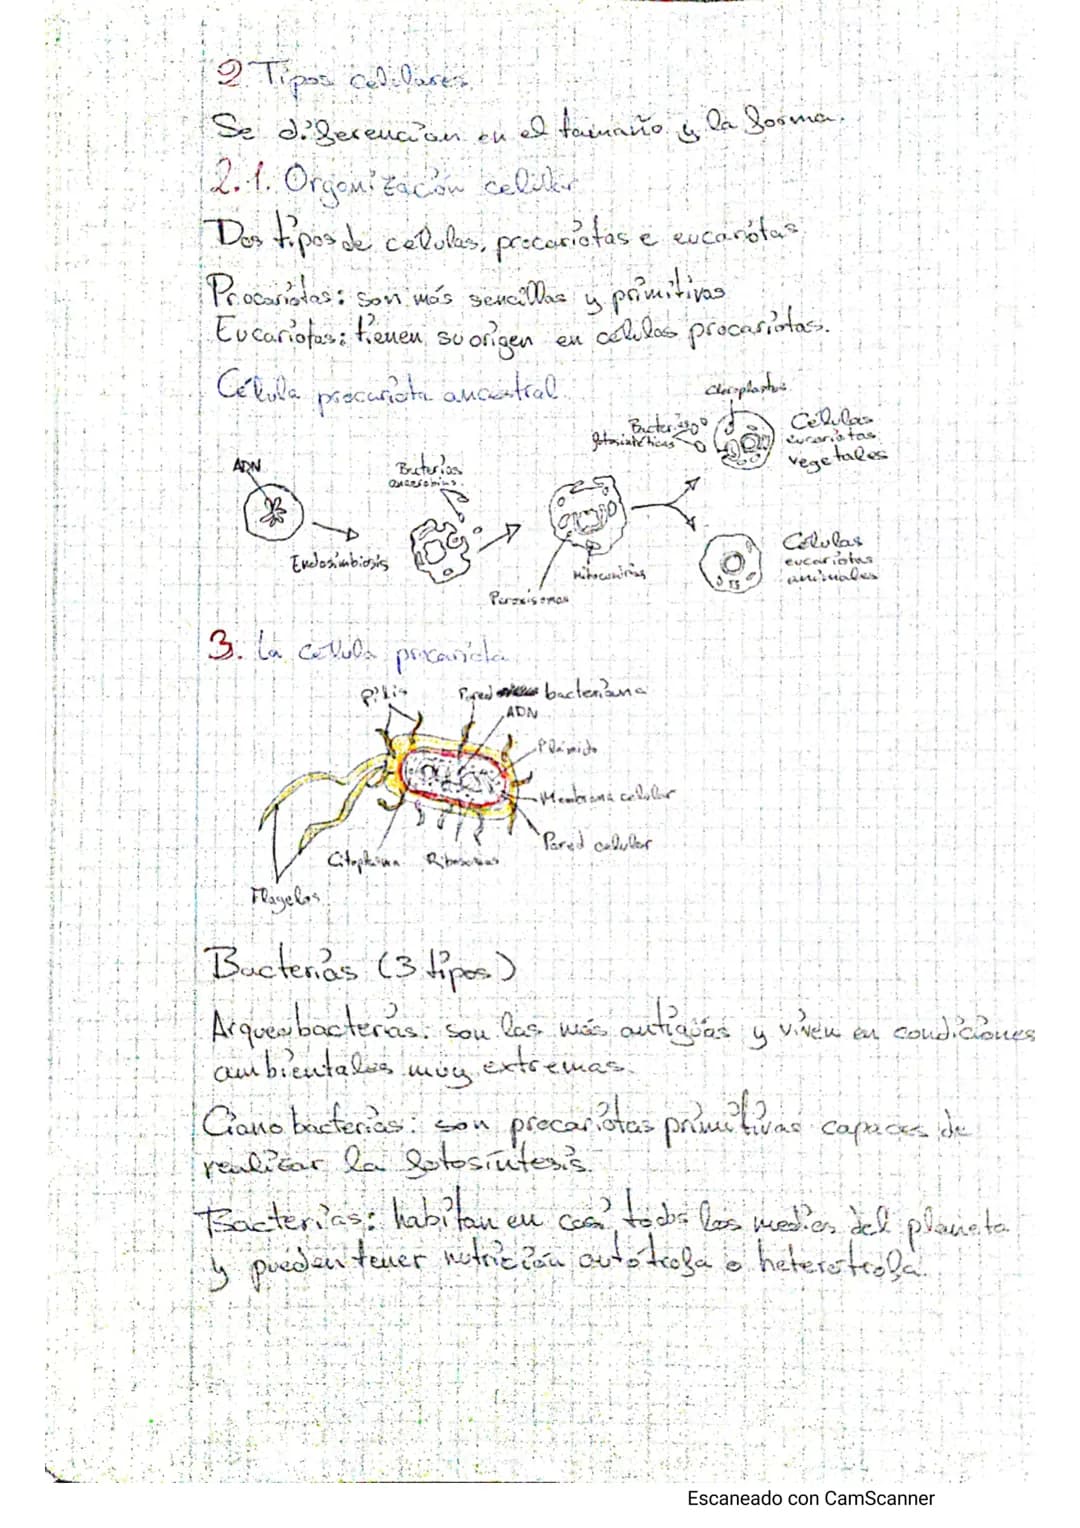 2 Tipos celulares
Se diferencian en el tamaño y la forma.
2.1. Organización celular
Dos tipos de células, procariotas e eucariotas
Procariotas: son más sencillas y primitivas
Eucariotas: tienen su origen en células procariotas.
Célula procariota ancestral
Cloroplastos
Bacterias
fotosintéticas
Células
eucariotas
vegetales
ADN
Bacterias
Endosimbiosis
Peroxisomas
Células
eucariotas
animales
3. La célula procariota
Pared bacteriana
ADN
Membrana celular
Pared celular
Citoplasma
Ribosomas
Flagelos
Bacterias (3 tipos)
Arqueobacterias: son las más antiguas y viven en condiciones
ambientales muy extremas.
Cianobacterias: son procariotas primitivas capaces de
realizar la fotosíntesis.
Bacterias: habitan en casi todos los medios del planeta
y pueden tener nutrición autótrofa o heterótrofa.
Escaneado con CamScanner